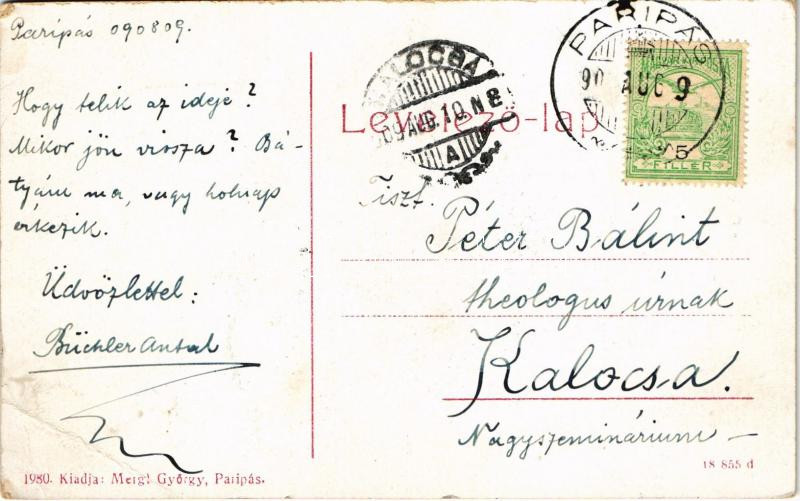 Paripás 090809.
Hogy telik az ideje?
Mikor jön vissza? Bá-
tyám ma, vagy holnap
érkezik.
Üdvözlettel:
Büchler Antal
1980. Kiadja: Mergl György, Paripás.
Levelező-lap
KALOCSA
909 AUG. 10. N 8
A
PARIPÁS
90 AUG 9
5
FILLÉR
Tiszt.
Péter Bálint
theologus úrnak
Kalocsa.
Nagyszeminárium –
18 855 d